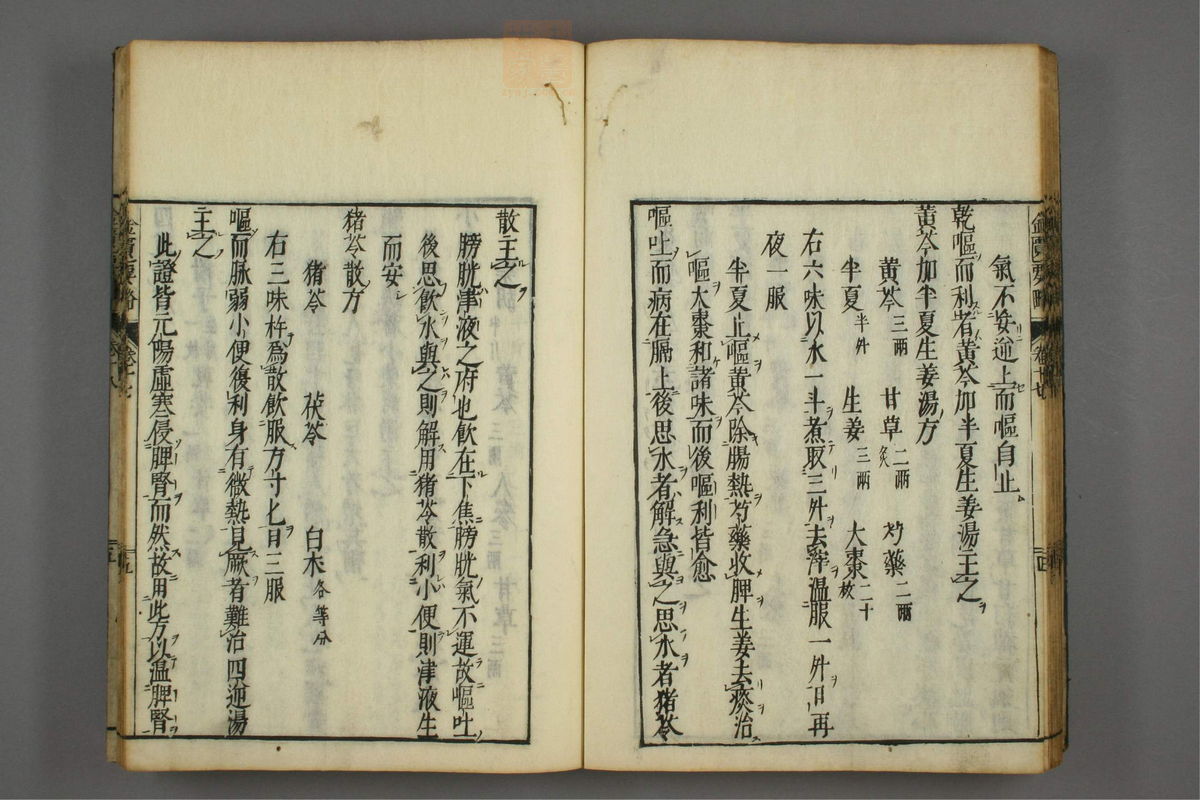 氣不安逆上而嘔自止
乾嘔而利者黄芩加半夏生姜湯主之
黄芩加半夏生姜湯方
黄芩三兩 甘草二兩炙 芍藥二兩
半夏半升 生姜三兩 大棗二十枚
右六味以水一斗煮取三升去滓温服一升日再
夜一服
半夏止嘔黄芩除腸熱芍藥收脾生姜去痰治
嘔大棗和諸味而後嘔利皆愈
嘔吐而病在膈上後思水者解急與之思水者猪苓
散主之
膀胱津液之府也飲在下焦膀胱氣不運故嘔吐
後思飲水與之則解用猪苓散利小便則津液生
而安
猪苓散方
猪苓 茯苓 白朮各等分
右三味杵爲散飲服方寸匕日三服
嘔而脉弱小便復利身有微熱見厥者難治四逆湯
主之
此證皆元陽虚寒侵脾腎而然故用此方以温脾腎